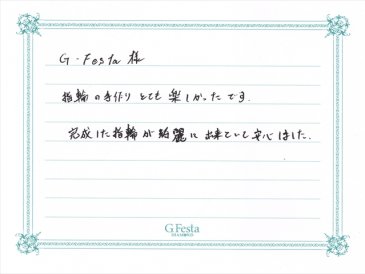 G.Festa 様
指輪の手作りとても楽しかったです.
完成した指輪が綺麗に出来ていて安心しました.
G.Festa